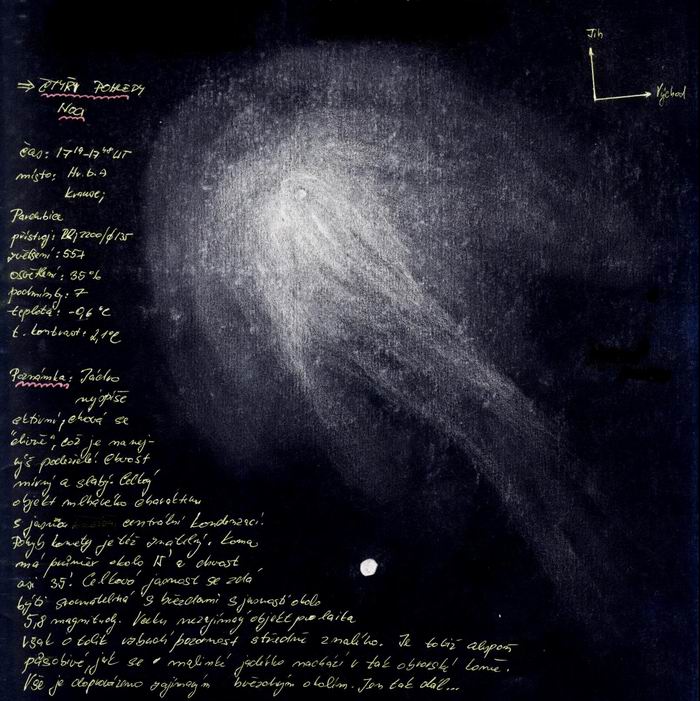 ⇒ ČTYŘI POHLEDY
NOCI
Jih
Východ
čas: 17¹⁹-17⁴⁸ UT
místo: Hv. b. A
Krause,
Pardubice
přístroj: 2200/φ135
zvětšení: 55x
osvětlení: 35%
podmínky: 7
teplota: -0,6 °C
t. kontrast: 2,1°C
Poznámka: Jádro
nejspíše
aktivní, chová se
"divně", což je nanej-
výš podezřelé. Chvost
mírný a slabý. Celkově
objekt mlhavého charakteru
s jasnou centrální kondenzací.
Pohyb komety je též znatelný. Koma
má průměr okolo 15' a chvost
asi 35'. Celková jasnost se zdá
býti srovnatelná s hvězdami s jasností okolo
5,8 magnitudy. Vcelku nezajímavý objekt pro laika
však o tolik vzbudí pozornost středně znalého. Je totiž alespoň
působivé, jak se malinké jadérko nachází v tak obrovské komě.
Vše je doprovázeno zajímavým hvězdným okolím. Jen tak dál...